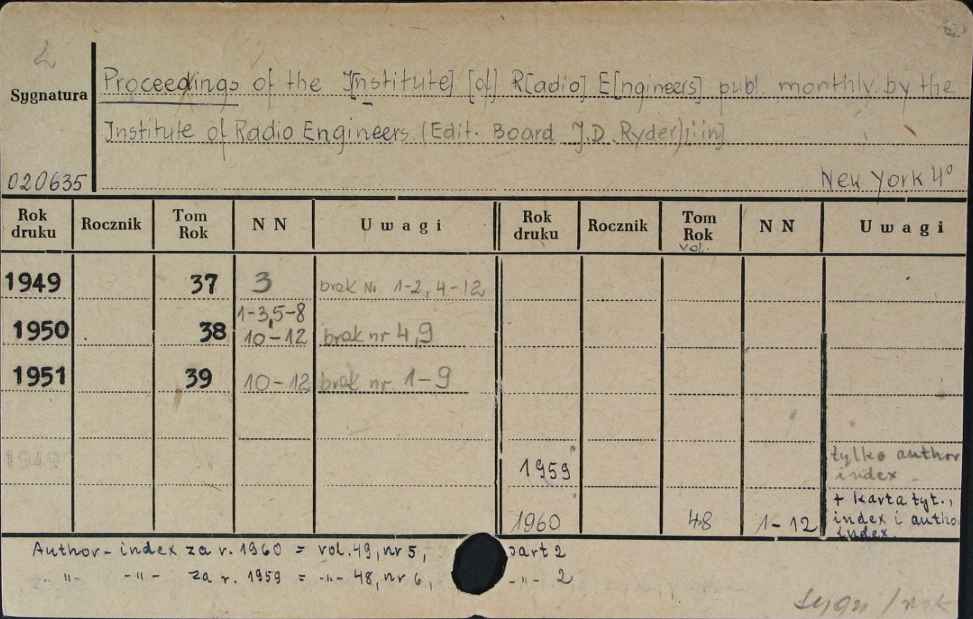 Sygnatura
Proceedings of the I[nstitute] [of] R[adio] E[ngineers] publ. monthly by the
Institute of Radio Engineers (Edit. Board J.D. Ryder) i in]
020635 New York 4°
Rok druku Rocznik Tom Rok NN Uwagi Rok druku Rocznik Tom Rok vol. NN Uwagi
1949 37 3 brak Nr 1-2, 4-12
1950 38 1-3, 5-8
10-12 brak nr 4, 9
1951 39 10-12 brak nr. 1-9
1949 1959 tylko author
index
1960 48 1-12 + karta tyt.,
index i autho.
index.
Author-index za r. 1960 = vol. 49, nr 5, part 2
-"- -"- za r. 1959 = -"- 48, nr 6, -"- 2